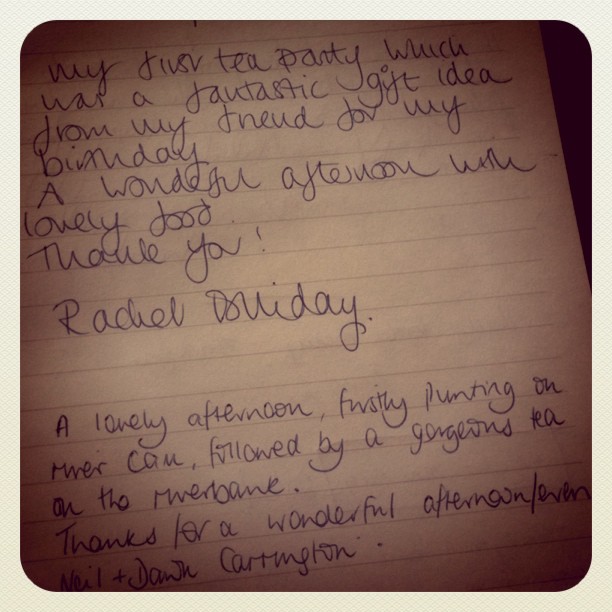 my first tea party which
was a fantastic gift idea
from my friend for my
birthday
A wonderful afternoon with
lovely food.
Thank you!
Rachel
A lovely afternoon, firstly punting on
river Cam, followed by a gorgeous tea
on the riverbank.
Thanks for a wonderful afternoon/even
Neil + Dawn Carrington.